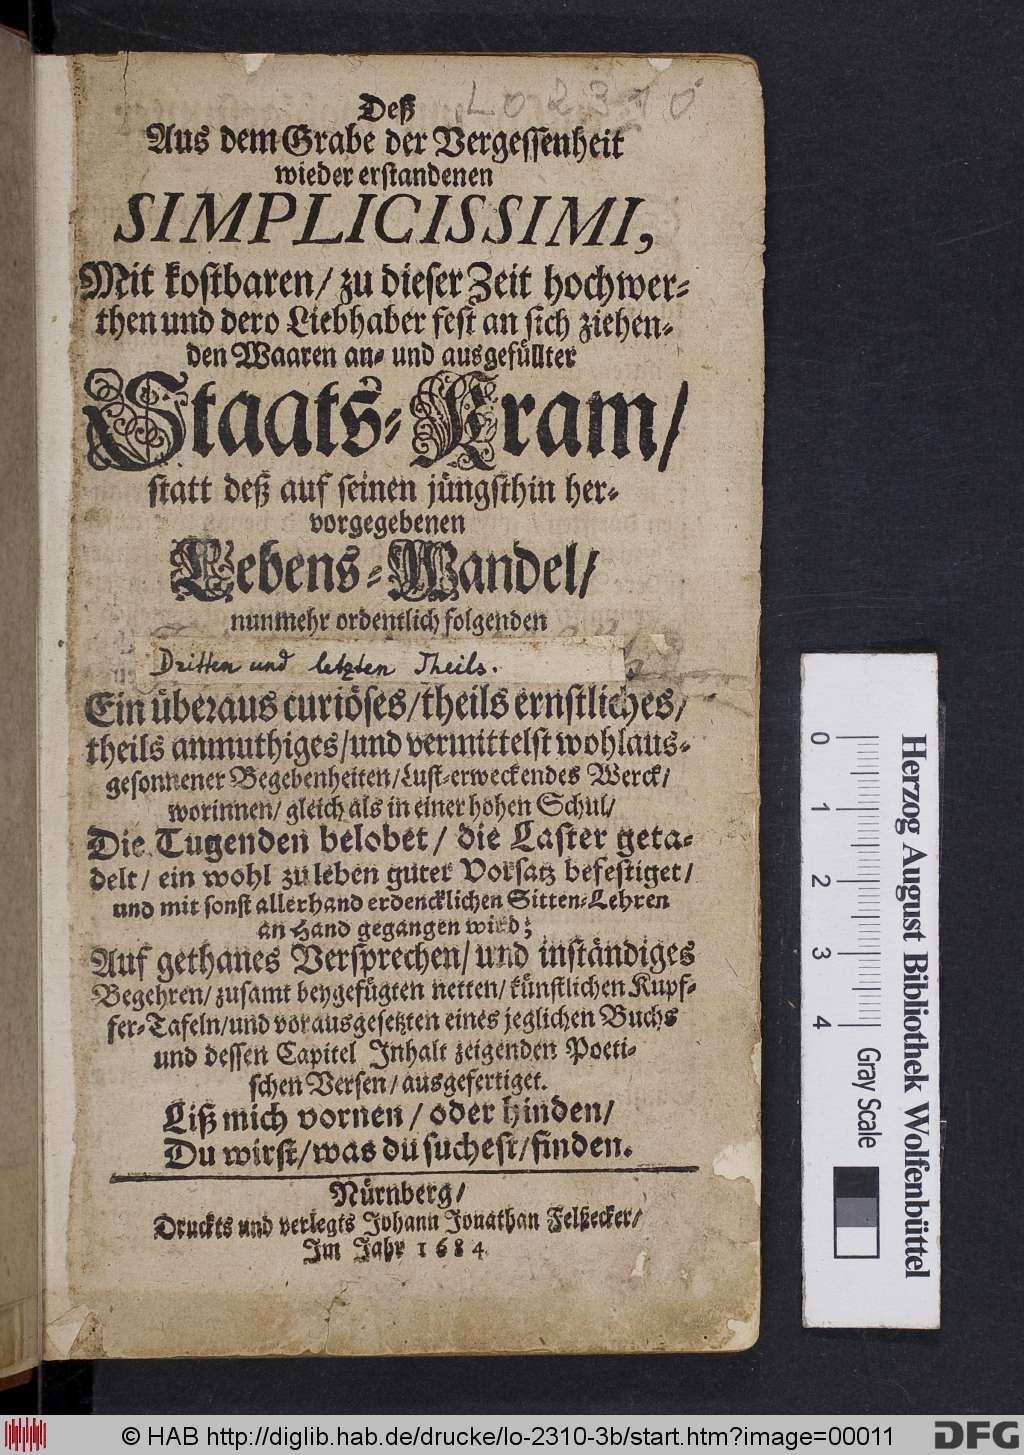 LO 2310
Deß
Aus dem Grabe der Vergessenheit
wieder erstandenen
SIMPLICISSIMI,
Mit kostbaren/ zu dieser Zeit hochwer-
then und dero Liebhaber fest an sich ziehen-
den Waaren an- und ausgefüllter
Staats-Kram/
statt deß auf seinen jüngsthin her-
vorgegebenen
Lebens-Wandel/
nunmehr ordentlich folgenden
Dritten und letzten Theils.
Ein überaus curiöses/theils ernstliches/
theils anmuthiges/und vermittelst wohlaus-
gesonnener Begebenheiten/Lust-erweckendes Werck/
worinnen/ gleich als in einer hohen Schul/
Die Tugenden belobet/ die Laster geta-
delt/ ein wohl zu leben guter Vorsatz befestiget/
und mit sonst allerhand erdencklichen Sitten-Lehren
an Hand gegangen wird;
Auf gethanes Versprechen/ und inständiges
Begehren/ zusamt beygefügten netten/ künstlichen Kupf-
fer-Tafeln/und vorausgesetzten eines jeglichen Buchs
und dessen Capitel Inhalt zeigenden Poeti-
schen Versen/ausgefertiget.
Liß mich vornen/ oder hinden/
Du wirst/was du suchest/finden.
Nürnberg/
Druckts und verlegts Johann Jonathan Felßecker/
Im Jahr 1684
0 1 2 3 4
Gray Scale
Herzog August Bibliothek Wolfenbüttel
© HAB http://diglib.hab.de/drucke/lo-2310-3b/start.htm?image=00011
DFG